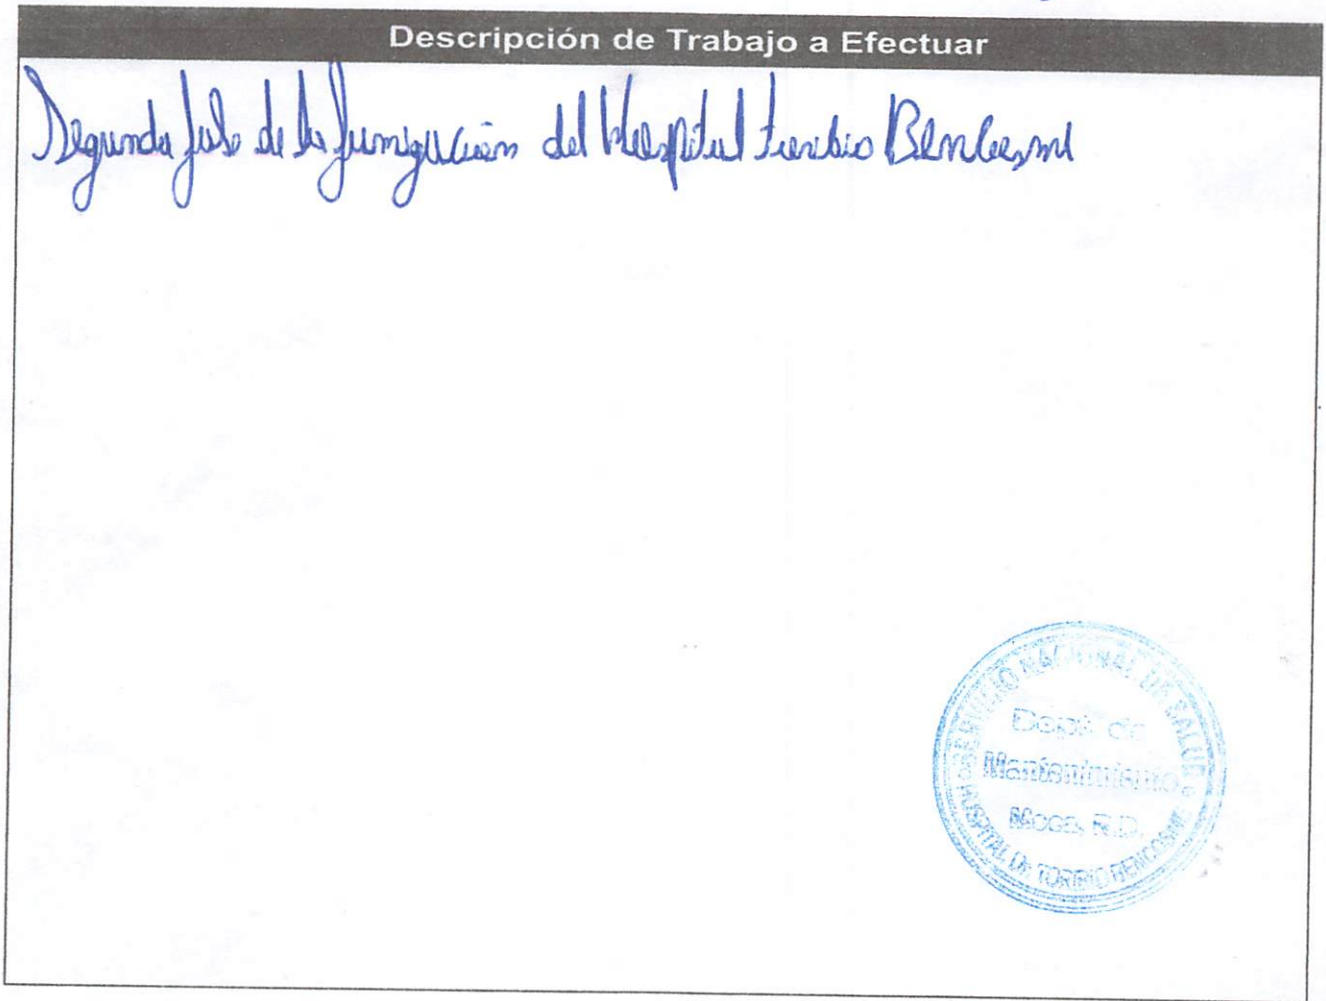 Descripción de Trabajo a Efectuar
Segunda fase de la fumigación del Hospital Toribio Bencosme
SERVICIO NACIONAL DE SALUD
Dept. de
Mantenimiento
Moca, R.D.
HOSPITAL Dr. TORIBIO BENCOSME